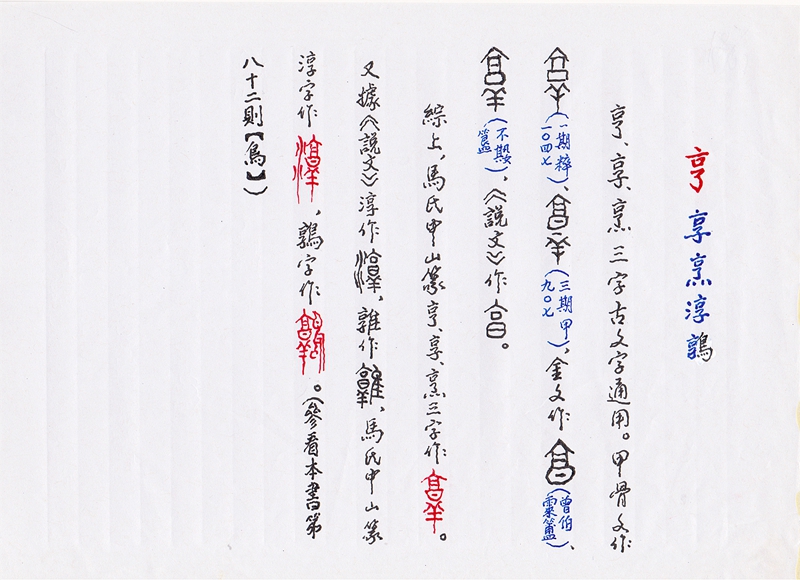 亨 享烹淳鶉
亨、享、烹三字古文字通用。甲骨文作
(一期粹一〇四七)、(三期甲九〇七)，金文作(曾伯霥簠)、
(不𡢁簋)，《說文》作。
綜上，馬氏中山篆亨、享、烹三字作。
又據《說文》淳作，雜作，馬氏中山篆
淳字作，鶉字作。(參看本書第
八十二則【鳥】)